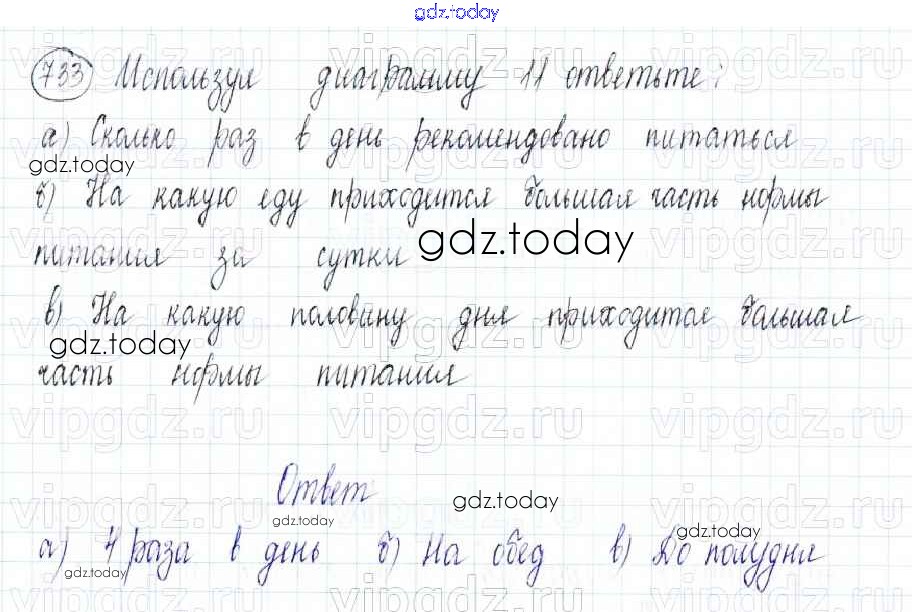 gdz.today
733 Используя диаграмму 11 ответьте:
а) Сколько раз в день рекомендовано питаться
gdz.today
б) На какую еду приходится большая часть нормы
питания за сутки gdz.today
в) На какую половину дня приходится большая
gdz.today
часть нормы питания
vipgdz.ru
Ответ
gdz.today
gdz.today
а) 4 раза в день б) На обед в) До полудня
gdz.today
gdz.today